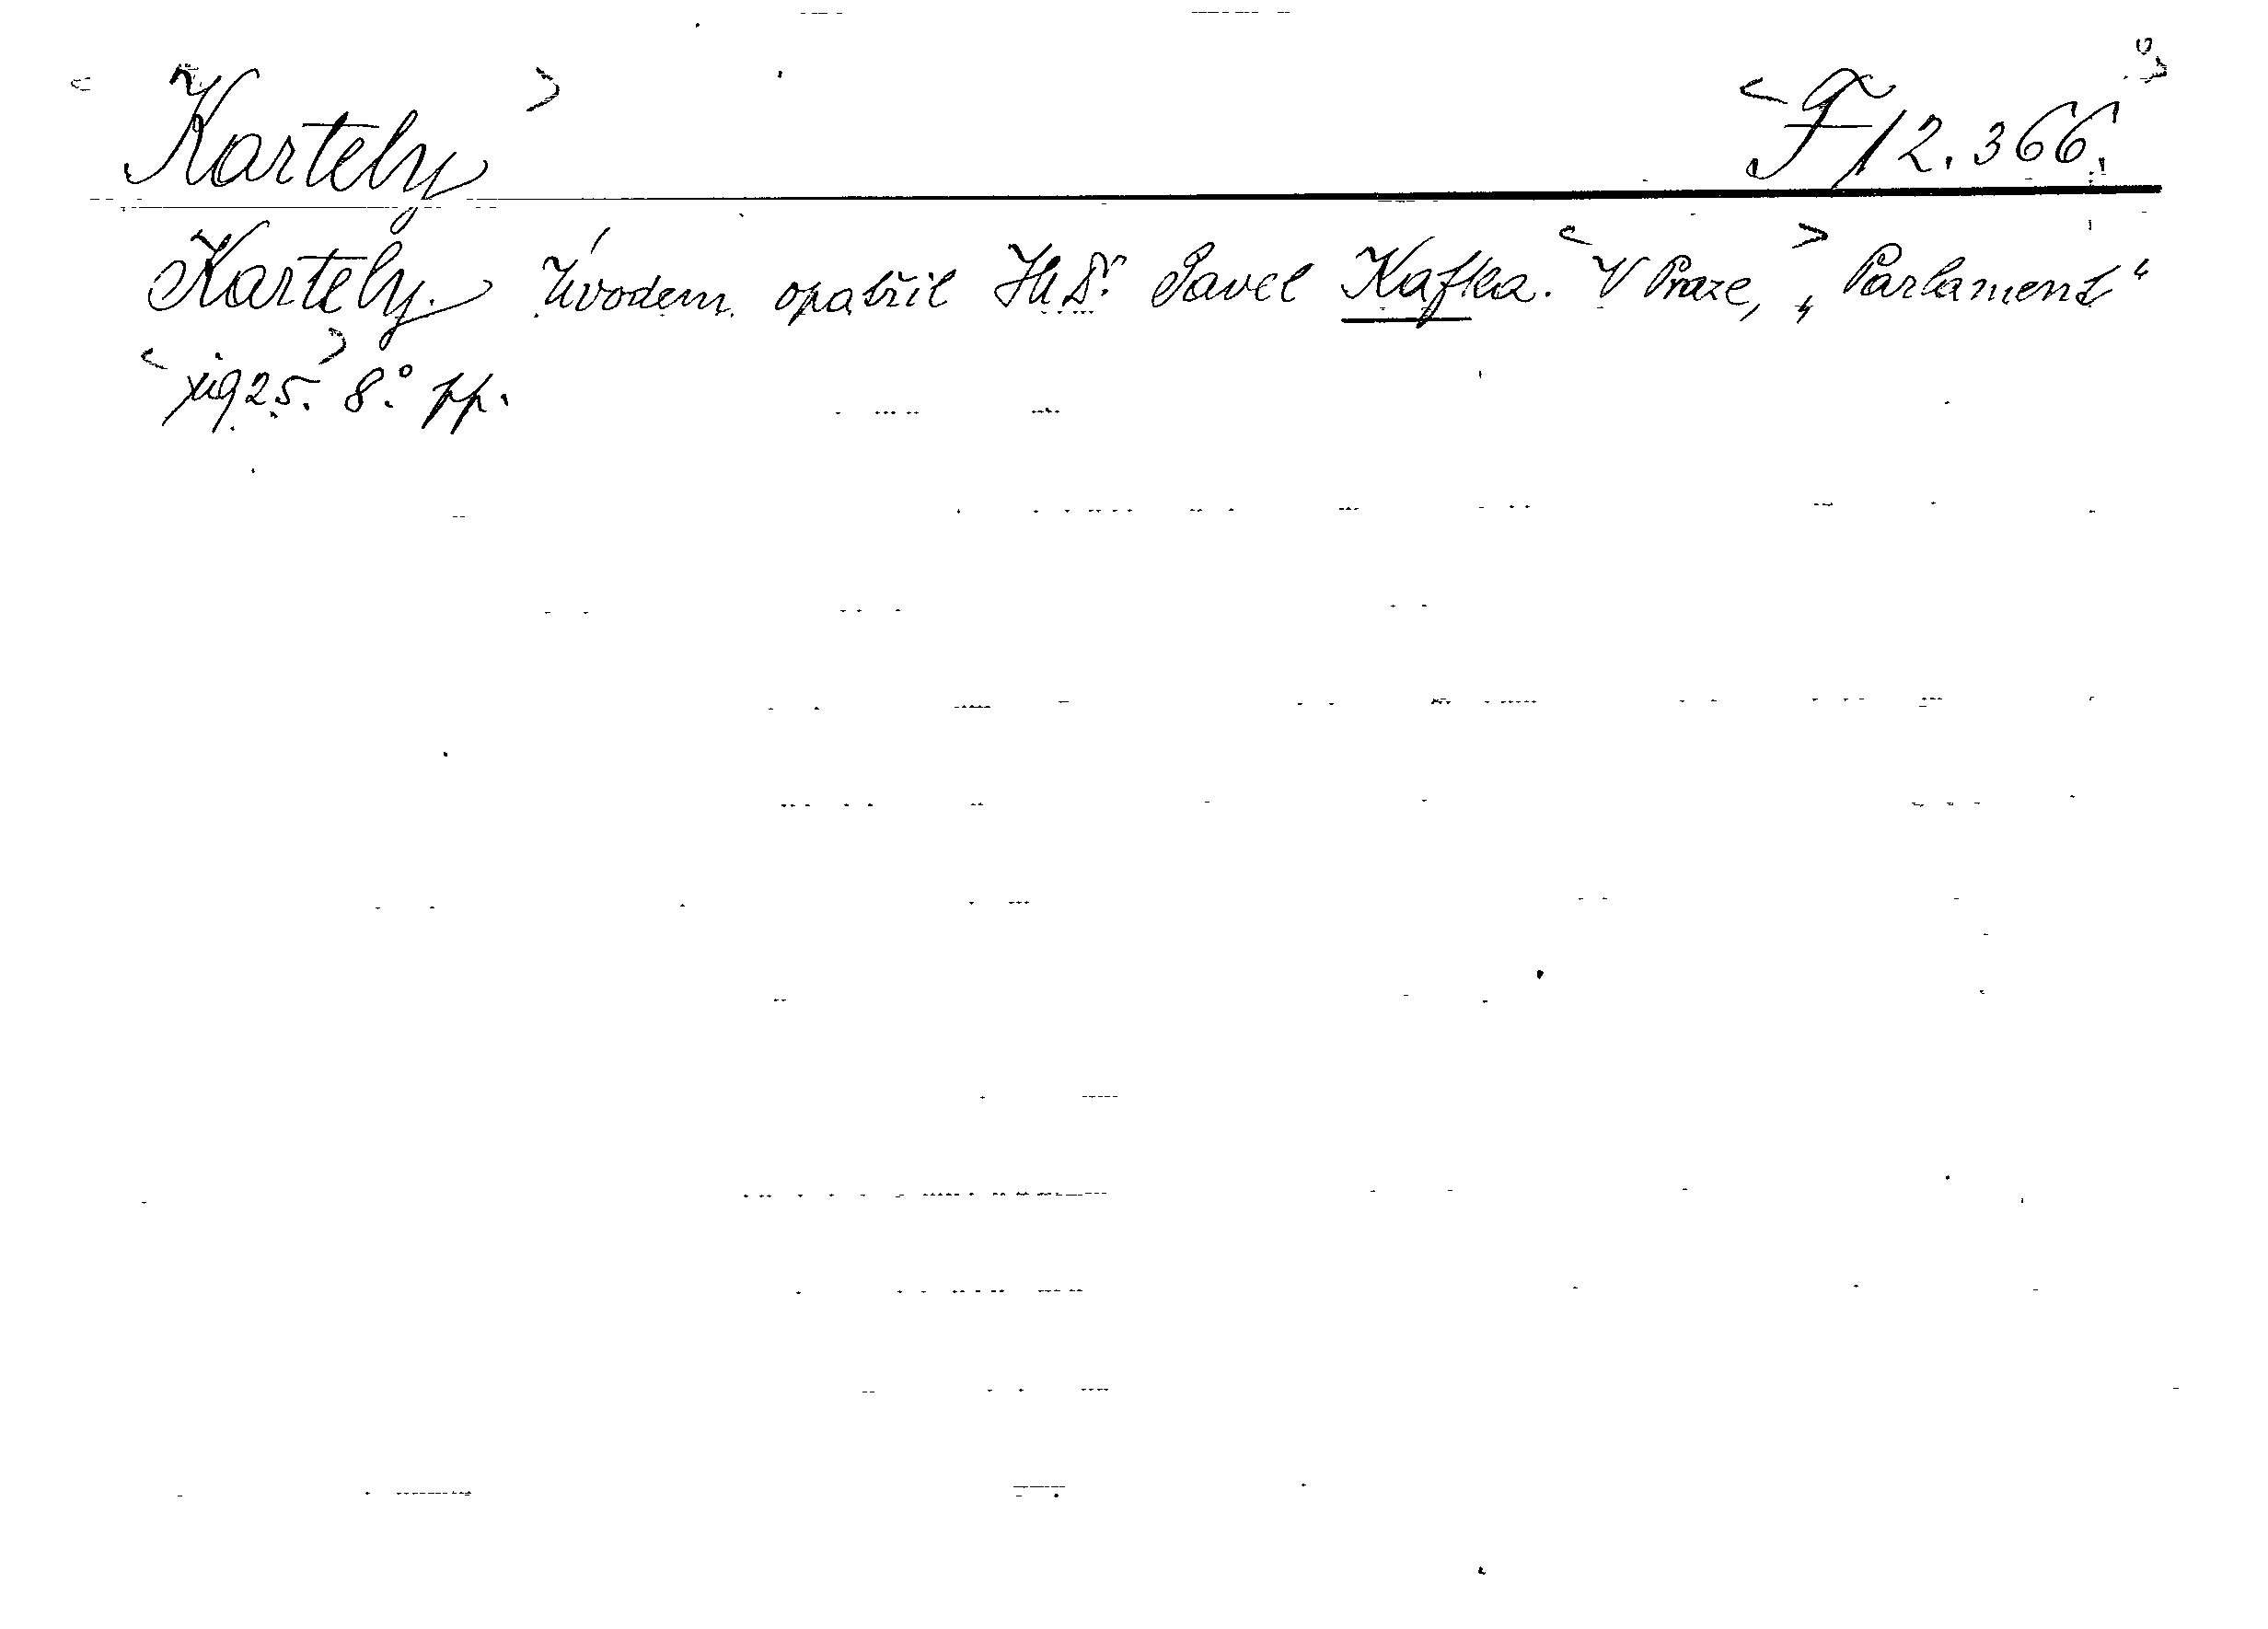 < Kartely > < F 12.366. >
Kartely. Úvodem opatřil JUDr. Pavel Kafka. < V Praze, > „Parlament“
< 1925. > 8° pp.